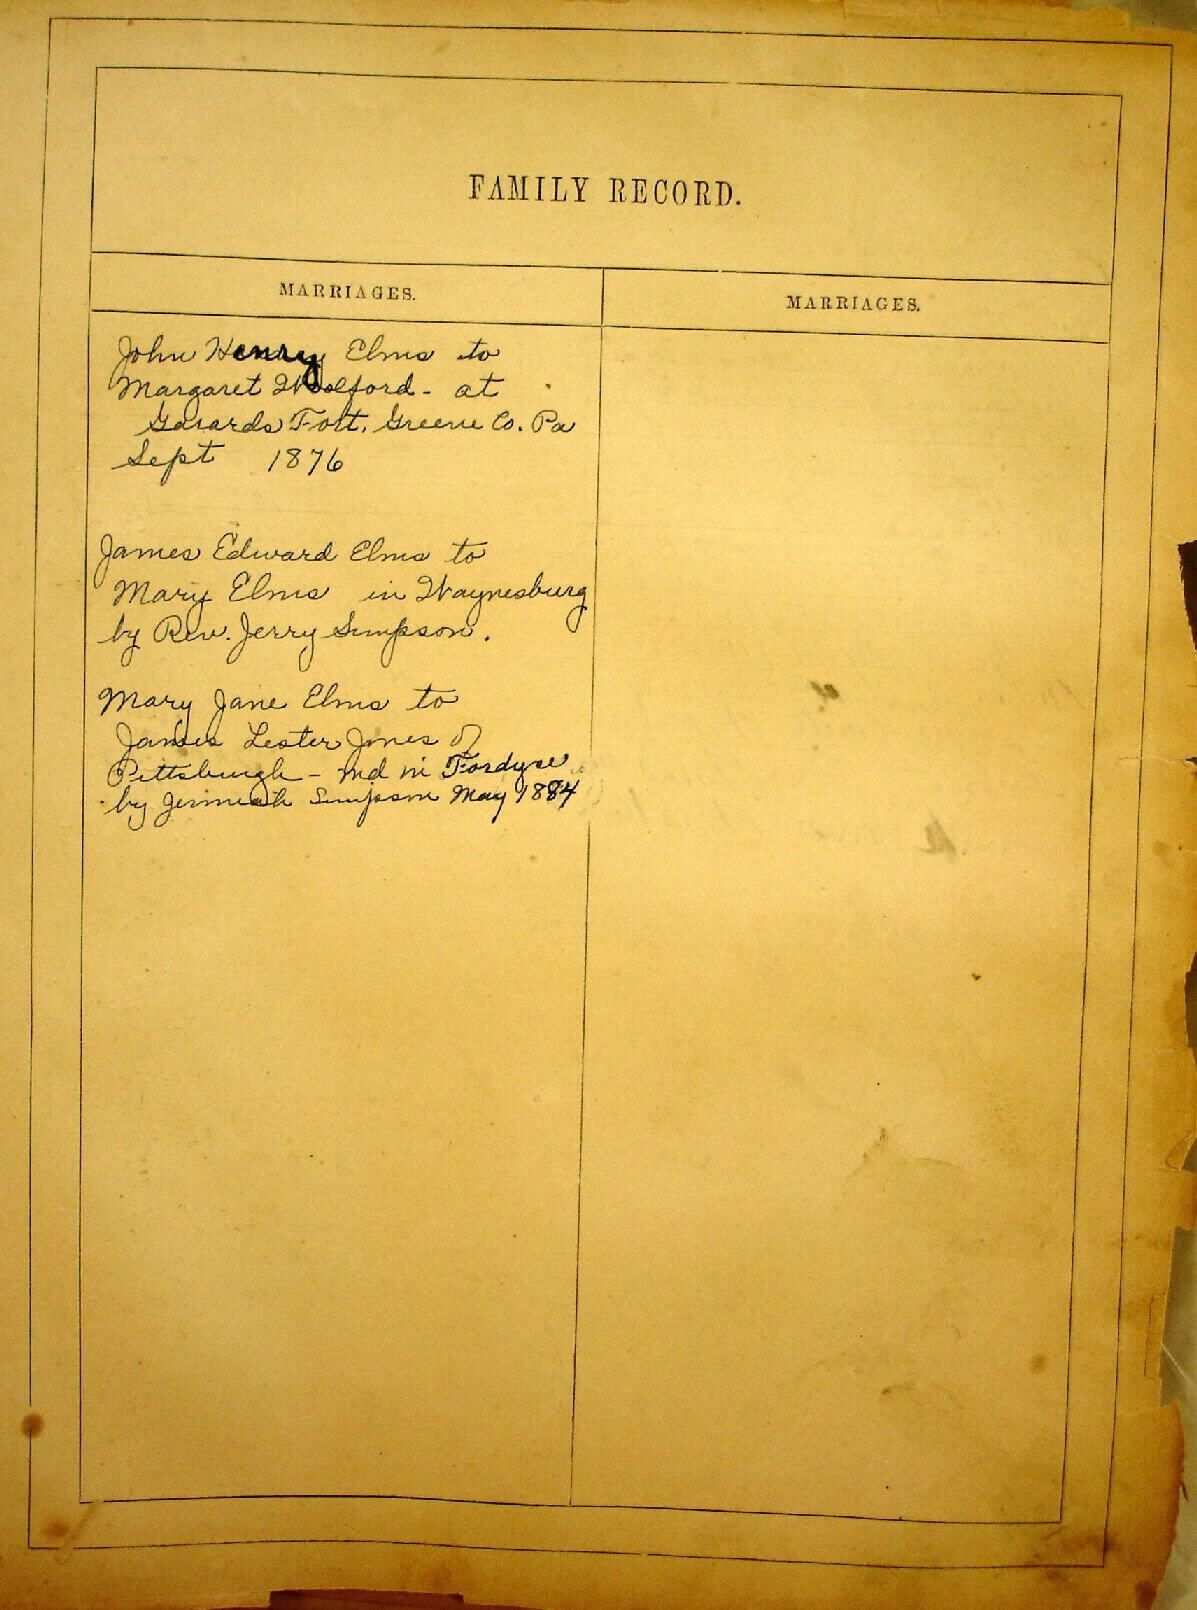 FAMILY RECORD.
MARRIAGES.
John Henry Elms to
Margaret Wolford - at
Garards Fort, Greene Co. Pa
Sept 1876
James Edward Elms to
Mary Elms in Waynesburg
by Rev. Jerry Simpson.
Mary Jane Elms to
James Lester Jones of
Pittsburgh - md in Fordyse
by Jerimiah Simpson May 1884
MARRIAGES.